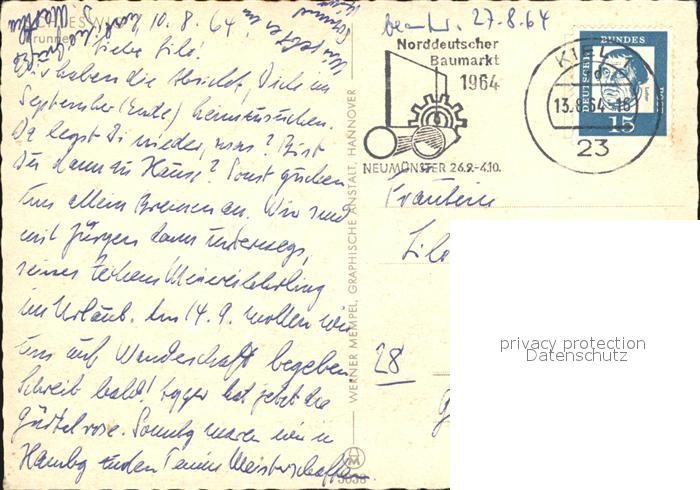 10.8.64.
Liebe Lilo!
Wir haben die Absicht, Dich im
September (Ende) heimzusuchen.
Da legst Du wieder, was? Bist
Du dann zu Hause? Sonst gucken
uns allein Bremen an. Wir sind
mit Jürgen dann unterwegs,
seines Zeichens
im Urlaub. Am 14.9. wollen wir
uns auf Wanderschaft begeben
Schreib bald! hat jetzt die
Gürtelrose. Sonntag waren wir in
Hambg zu den Tennis Meisterschaften
WERNER MEMPEL, GRAPHISCHE ANSTALT, HANNOVER
beantw. 27.8.64
Norddeutscher
Baumarkt
1964
NEUMÜNSTER 26.9.-4.10.
KIEL 1
d
13.8.64.-18
23
DEUTSCHE
BUNDES
POST
15
Fräulein
Lilo
28
privacy protection
Datenschutz